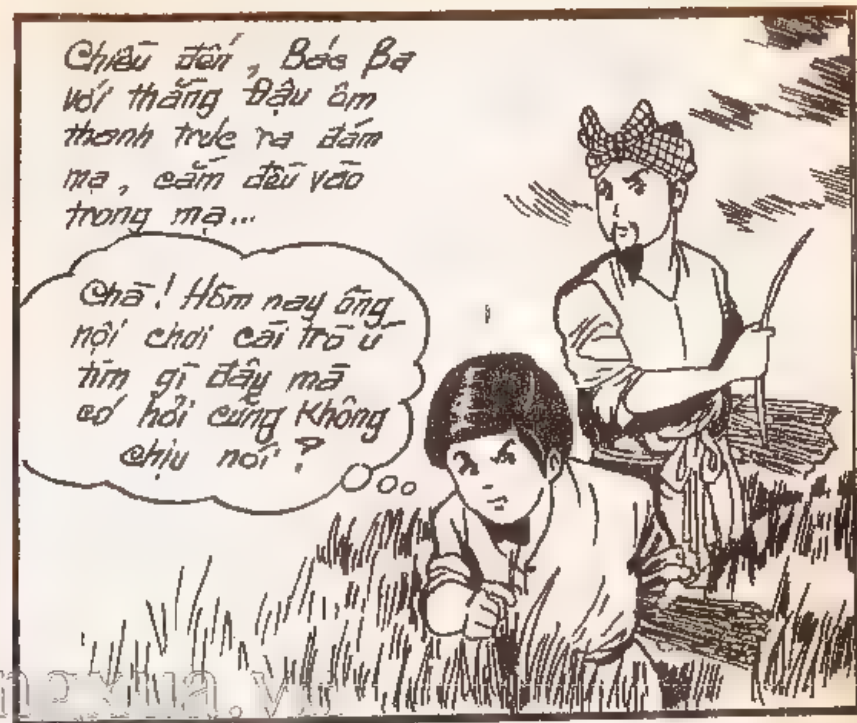 Chiều đến, Bác Ba
với thằng Đậu ôm
thanh trúc ra đám
mạ, cắm đều vào
trong mạ...
Chà! Hôm nay ông
nội chơi cái trò ú
tìm gì đây mà
có hỏi cũng không
chịu nói?